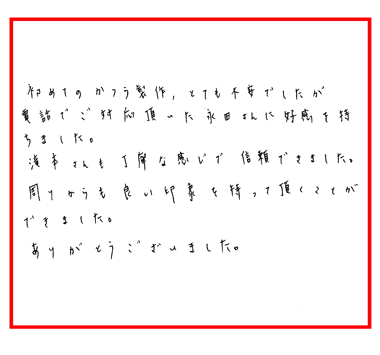 初めてのかつら製作、とても不安でしたが
電話でご対応頂いた永田さんに好感を持
ちました。
濱本さんも丁寧な感じで信頼できました。
周りからも良い印象を持って頂くことが
できました。
ありがとうございました。